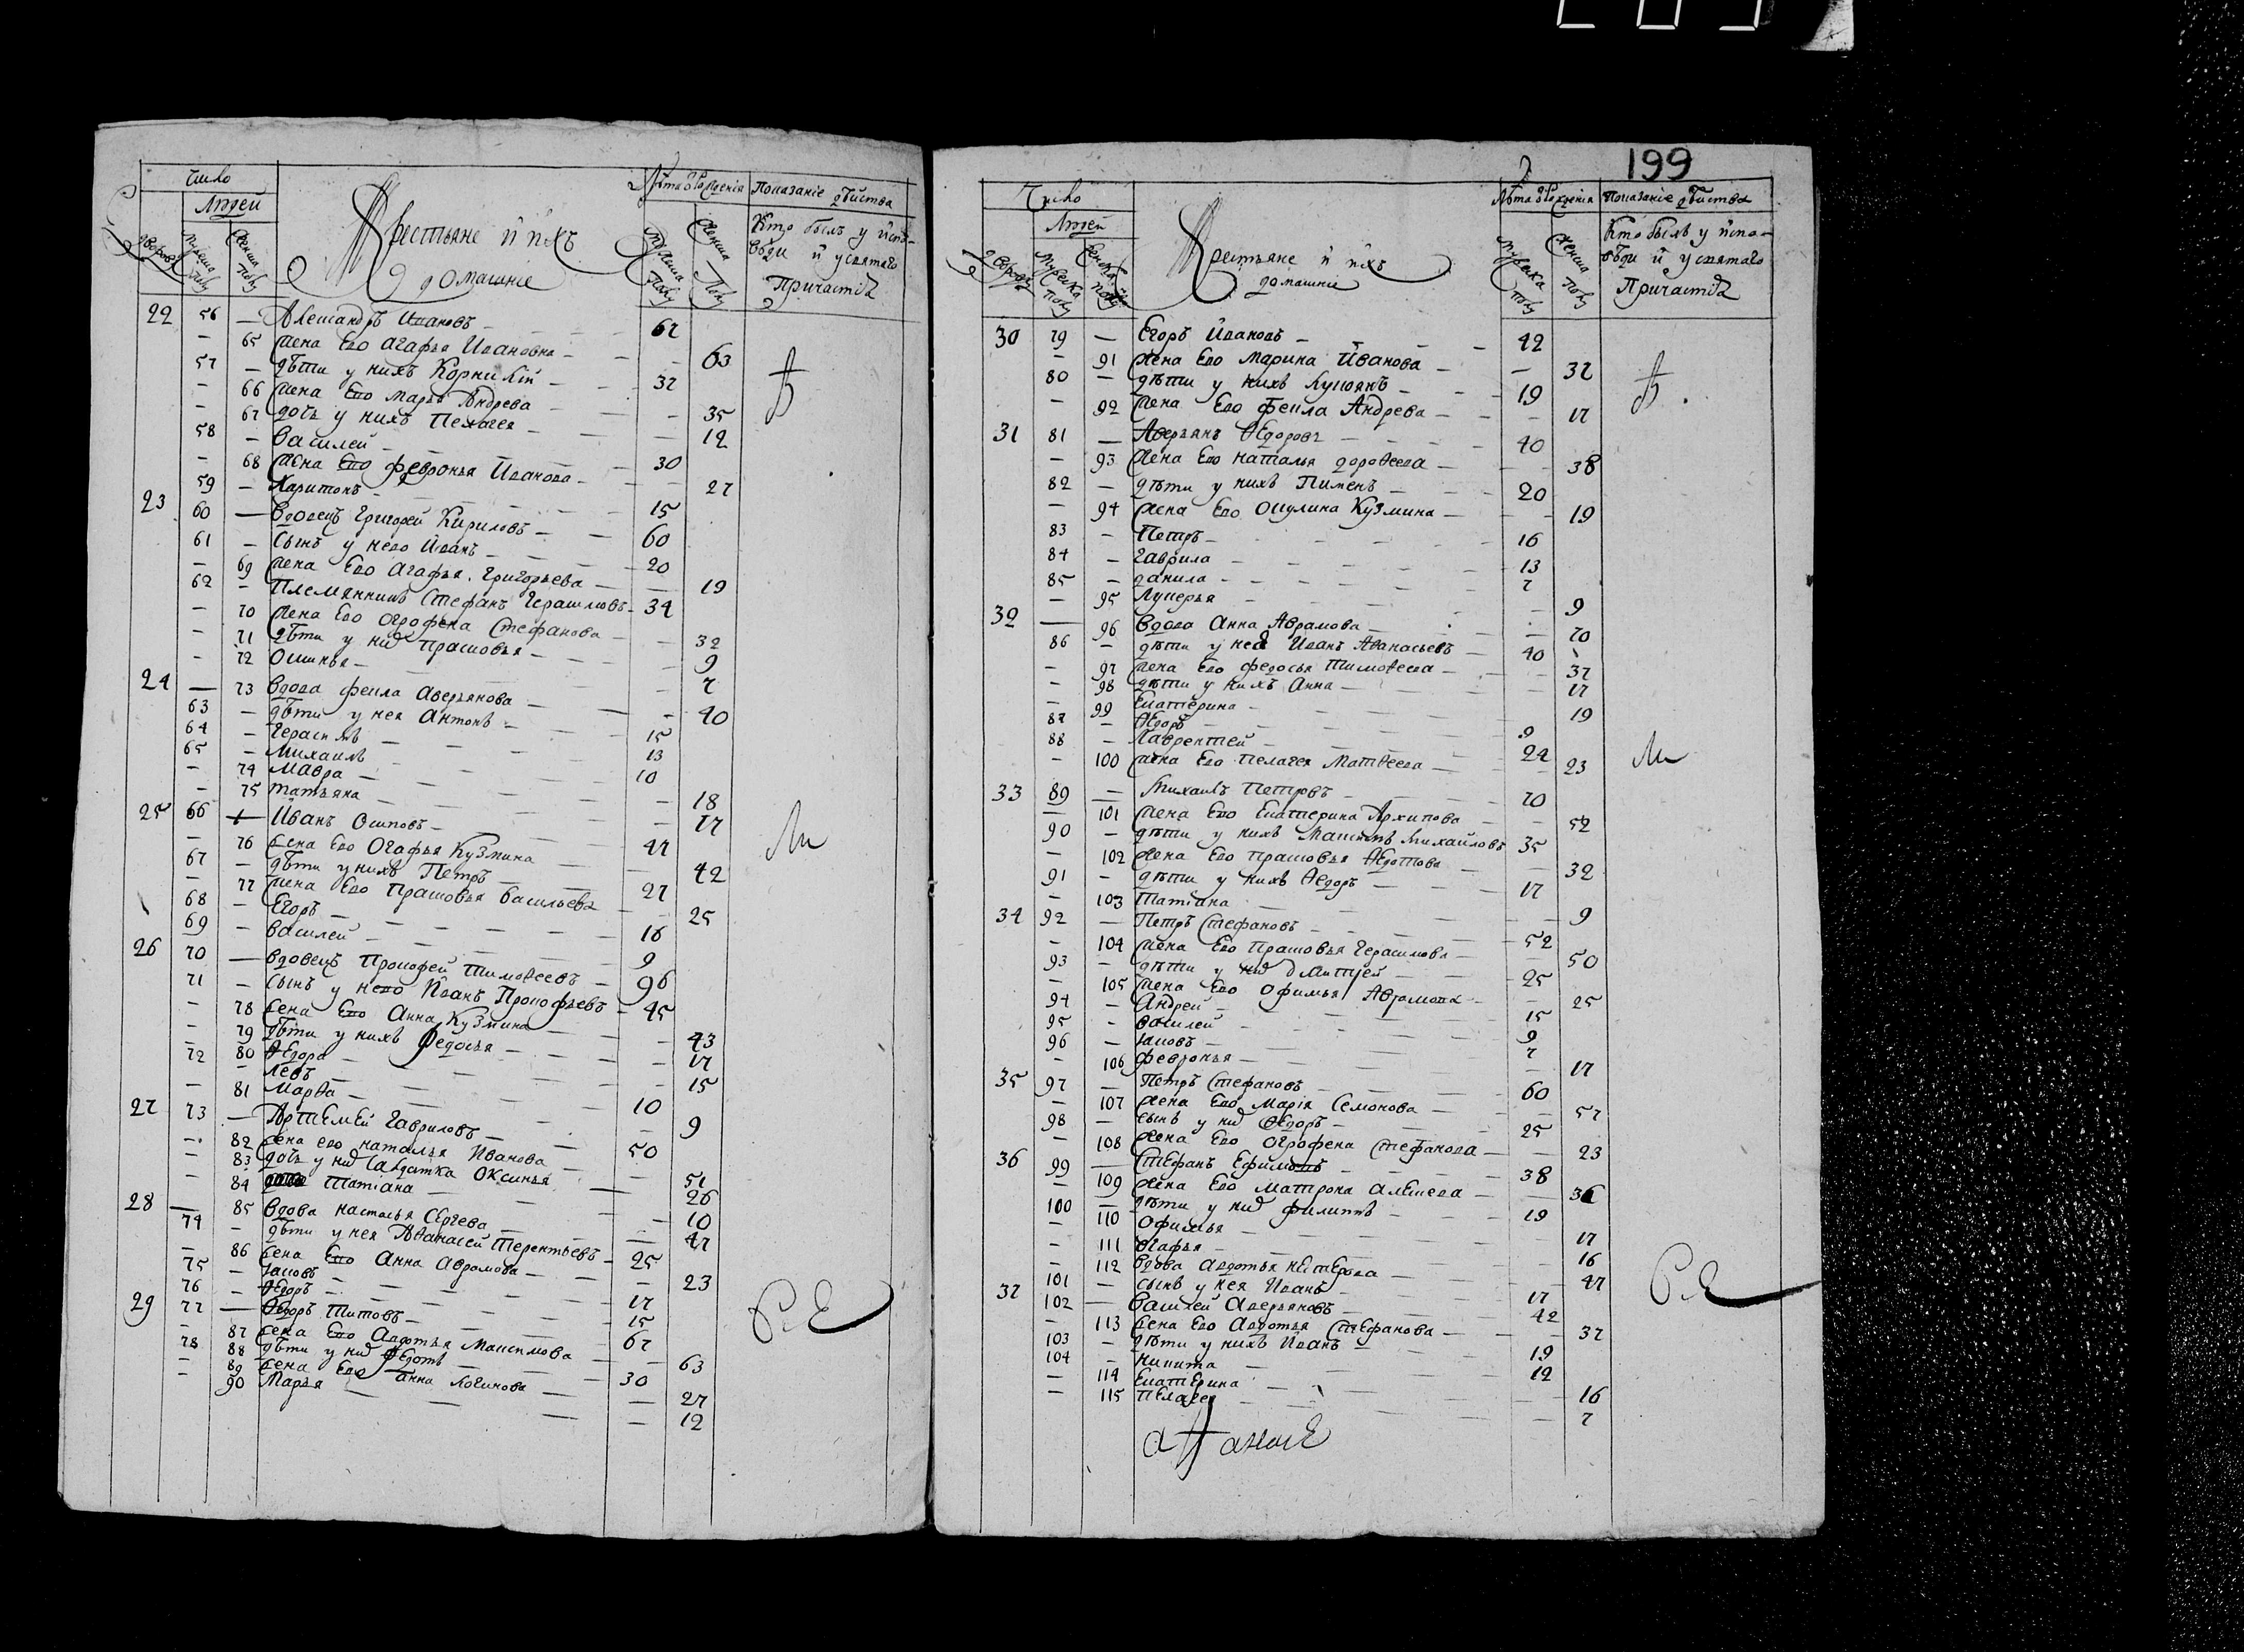 число
Людей
Лѣта ѿ Рожденія
Показаніе дѣиства
дворовъ
мужеска Полу
женска Полу
Крестьяне и ихъ домашніе
мужеска Полу
женска Полу
Кто былъ у испо-
вѣди и у святаго
Причастія
22 56 — Александръ Ивановъ — 67
— 65 жена Его Агафья Ивановна — 63
57 — дѣти у нихъ Корнилій — 37
— 66 жена Его Марья Андрева — 35
— 67 дочь у нихъ Пелагея — 12
58 — Василей — 30
— 68 жена Его Февронья Иванова — 27
59 — Харитонъ — 15
23 60 — вдовецъ Григорей Кириловъ — 60
61 — сынъ у него Иванъ — 20
— 69 жена Его Агафья Григорьева — 19
62 — Племянникъ Стефанъ Герасимовъ — 34
— 70 жена Его Огрофена Стефанова — 32
— 71 дѣти у них Прасковья — 9
— 72 Оксинья — 7
24 — 73 вдова Фекла Аверьянова — 40
63 — дѣти у нея Антонъ — 15
64 — Герасимъ — 13
65 — Михаилъ — 10
— 74 Мавра — 18
— 75 Татьяна — 17
25 66 — Иванъ Осиповъ — 47
— 76 жена Его Огафья Кузмина — 42
67 — дѣти у нихъ Петръ — 27
— 77 жена Его Прасковья Васильева — 25
68 — Егоръ — 16
69 — Василей — 9
26 70 — вдовецъ Прокофей Тимоѳеевъ — 96
71 — сынъ у него Иванъ Прокофьевъ — 45
— 78 жена Его Анна Кузмина — 43
— 79 дѣти у нихъ Федосья — 17
— 80 Ѳедора — 15
72 — Левъ — 10
— 81 Марѳа — 9
27 73 — Артемей Гавриловъ — 50
— 82 жена его Наталья Иванова — 51
— 83 дочь у них Салдатка Оксинья — 26
— 84 Татіана — 10
28 — 85 вдова Настасья Сергева — 47
74 — дѣти у нея Аѳанасей Терентьевъ — 25
— 86 жена Его Анна Аврамова — 23
75 — Іаковъ — 17
76 — Ѳедоръ — 15
29 77 — Ѳедоръ Титовъ — 67
— 87 жена Его Авдотья Максимова — 63
78 88 дѣти у них Ѳедотъ — 30
— 89 жена Его Анна Логинова — 27
— 90 Марья — 12
199
Число
Людей
Лѣта ѿ Рожденія
Показаніе дѣиства
дворовъ
мужеска полу
женска полу
Крестьяне и ихъ домашніе
мужеска полу
женска полу
Кто былъ у испо-
вѣди и у святаго
Причастія
30 79 — Егоръ Ивановъ — 42
— 91 жена Его Марина Иванова — 37
80 — дѣти у нихъ Купріянъ — 19
— 92 жена Его Фекла Андрева — 17
31 81 — Аверьянъ Ѳедоровъ — 40
— 93 жена Его Наталья Дороѳеева — 38
82 — дѣти у нихъ Пименъ — 20
— 94 жена Его Окулина Кузмина — 19
83 — Петръ — 16
84 — Гаврила — 13
85 — Данила — 7
— 95 Лукерья — 9
32 — 96 вдова Анна Аврамова — 70
86 — дѣти у нея Иванъ Аѳанасьевъ — 40
— 97 жена Его Федосья Тимоѳеева — 37
— 98 дѣти у нихъ Анна — 17
— 99 Екатерина — 19
87 — Ѳедоръ — 9
88 — Лаврентей — 24
— 100 жена Его Пелагея Матвеева — 23
33 89 — Михаилъ Петровъ — 70
— 101 жена Его Екатерина Архипова — 52
90 — дѣти у нихъ Максимъ Михайловъ 35
— 102 жена Его Прасковья Ѳедотова — 32
91 — дѣти у нихъ Ѳедоръ — 17
— 103 Татіана — 9
34 92 — Петръ Стефановъ — 52
— 104 жена Его Прасковья Герасимова — 50
93 — дѣти у них Дмитрей — 25
— 105 жена Его Офимья Аврамова — 25
94 — Андрей — 15
95 — Василей — 9
96 — Іаковъ — 7
— 106 Февронья — 17
35 97 — Петръ Стефановъ — 60
— 107 жена Его Марія Семонова — 57
98 — сынъ у них Ѳедоръ — 25
— 108 жена Его Огрофена Стефанова — 23
36 99 — Стефанъ Ефимовъ — 38
— 109 жена Его Матрона Алексева — 36
100 — дѣти у них Филиппъ — 19
— 110 Офимья — 17
— 111 Огафья — 16
— 112 вдова Авдотья Нестерова — 47
101 — сынъ у нея Иванъ — 17
37 102 — Василей Аверьяновъ — 42
— 113 жена Его Авдотья Стефанова — 37
103 — дѣти у нихъ Иванъ — 19
104 — Никита — 12
— 114 Екатерина — 16
— 115 Пелагея — 7